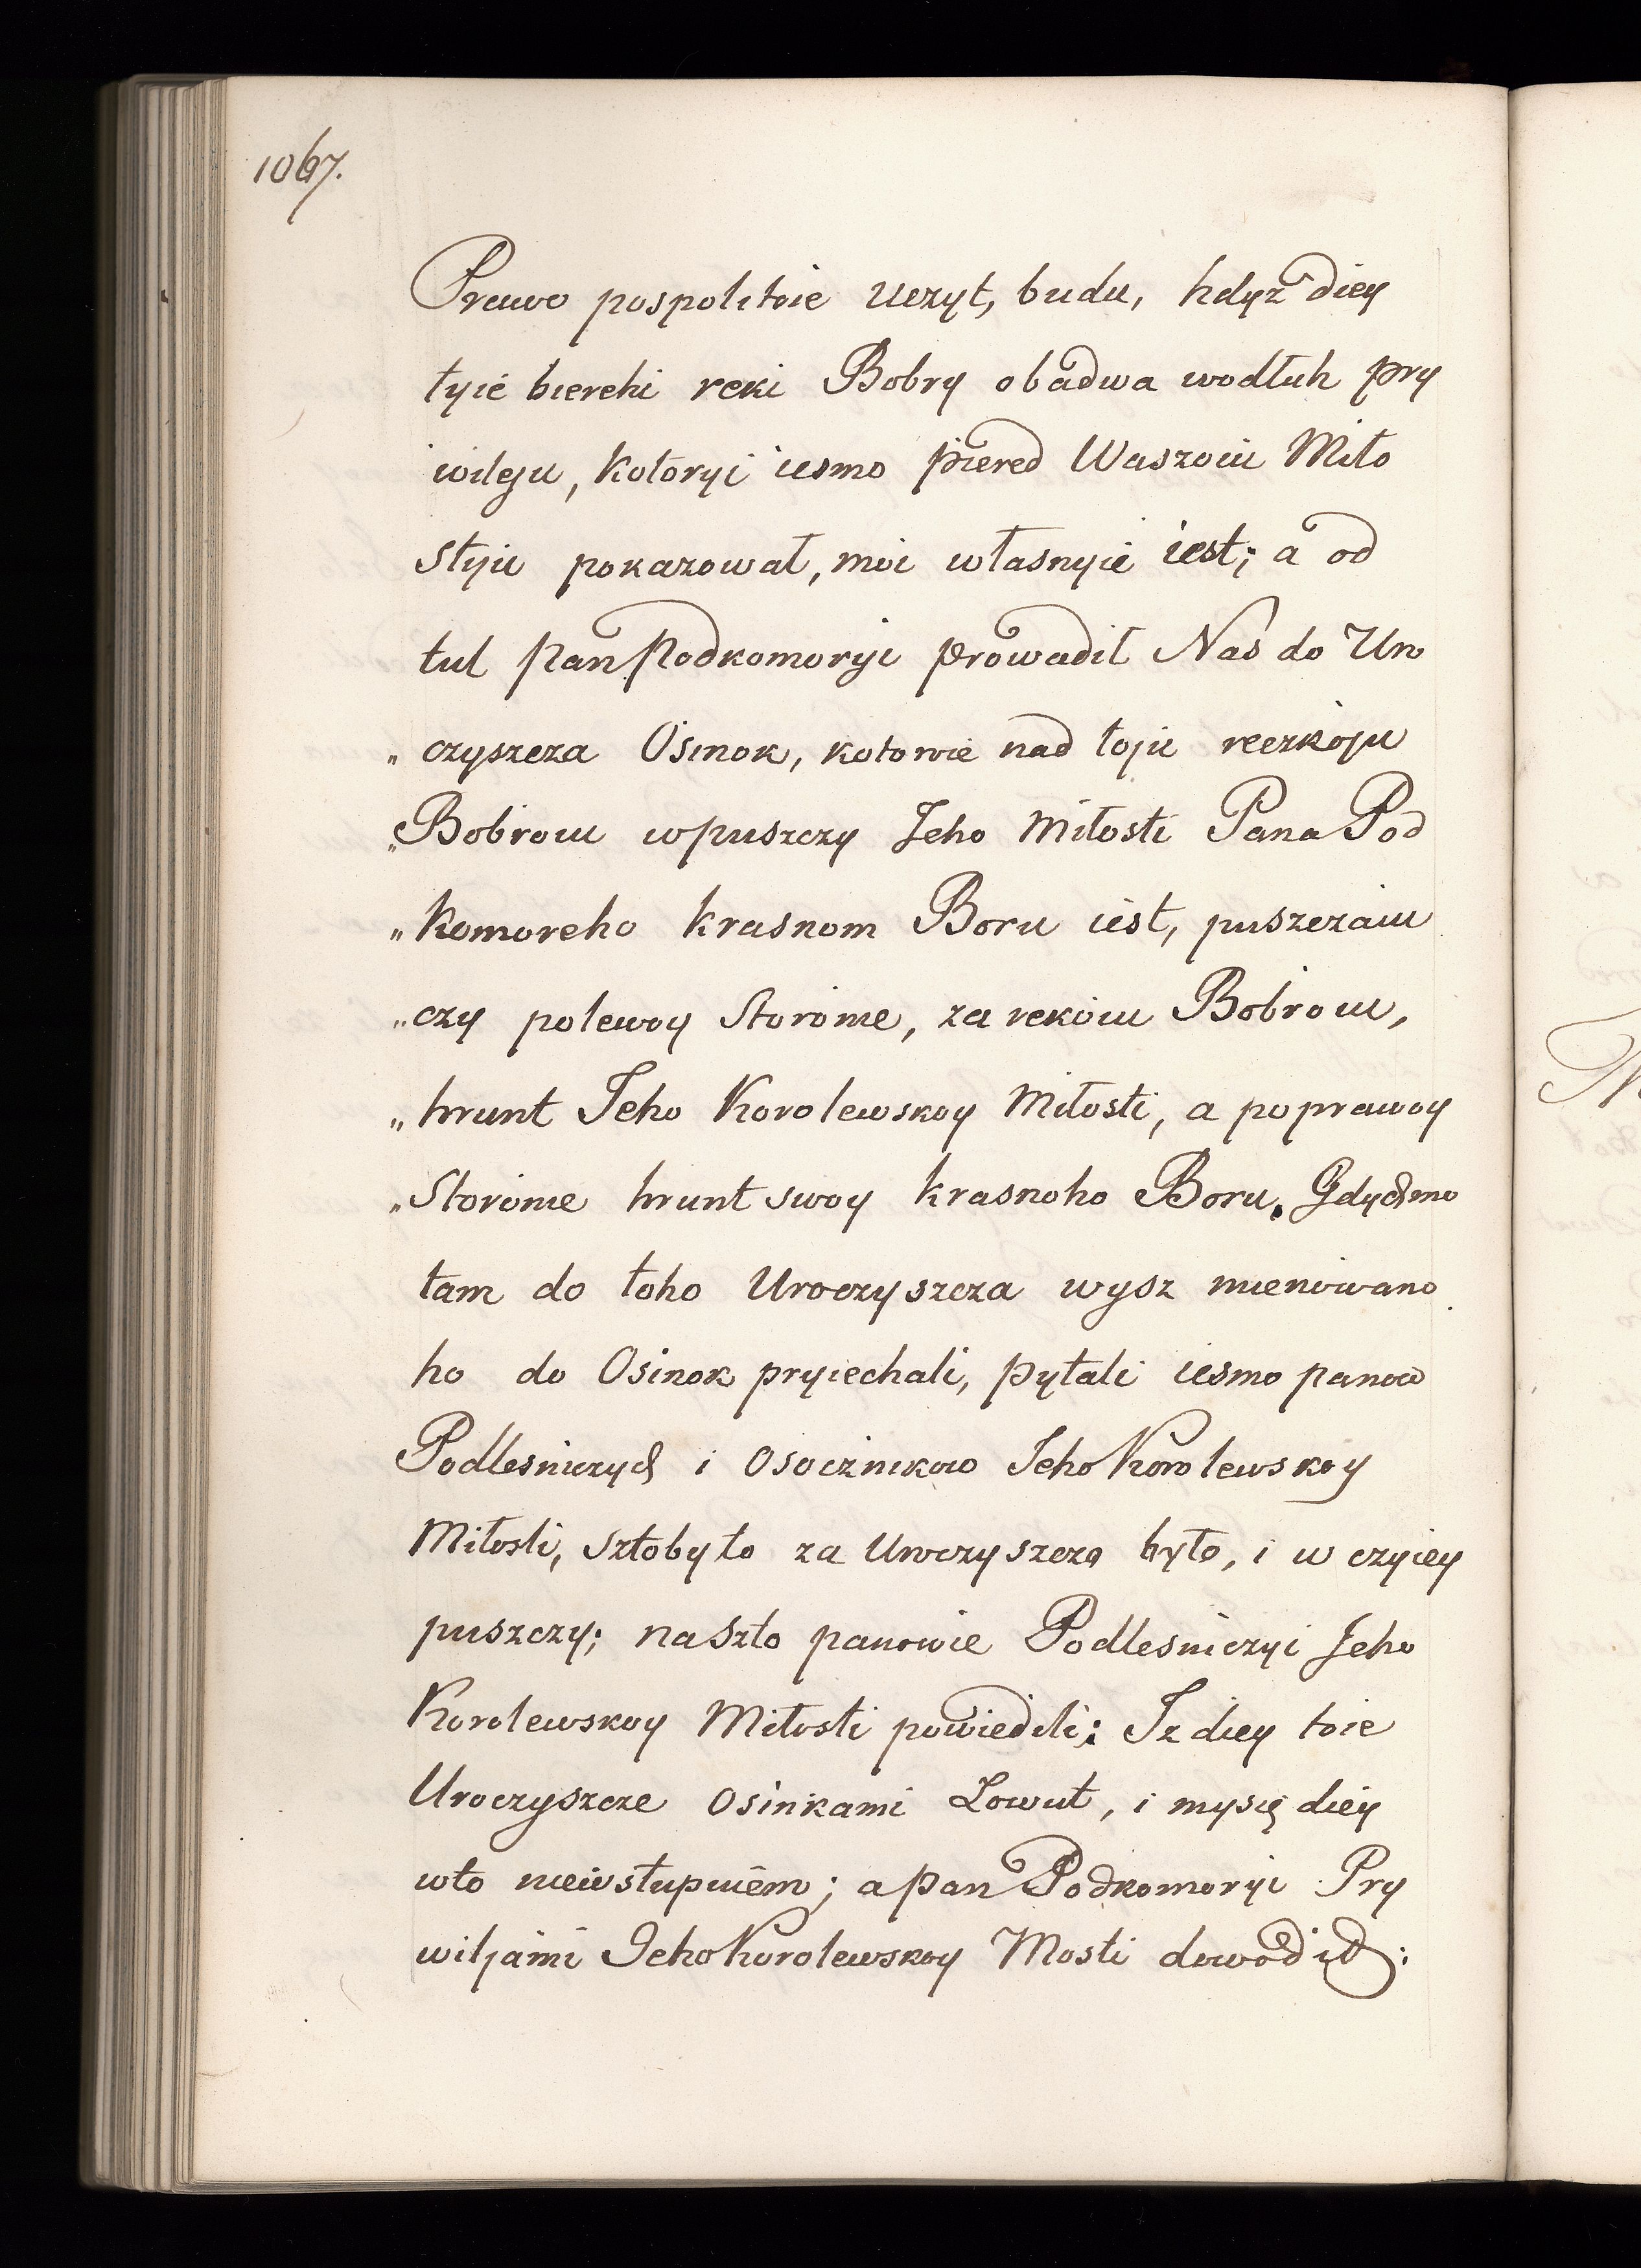 1067.
Prawo pospolitoie uczyt, budu, hdyż diey
tyie bierehi reki Bobry obadwa wodłuh pry
wileju, kotoryi iesmo pered Waszoiu Miło
styiu pokazował, moi własnyie iest; a od
tul Pan Podkomoryi prowadil Nas do Uro
„ czyszcza Osinok, kotoroie nad toju reczkoju
„ Bobroiu wpuszczy Jeho Miłosti Pana Pod
„ Komoreho krasnom Boru iest, puszczaiu
„ czy polewoy Storonie, za rekoiu Bobroiu,
„ hrunt Jeho Korolewskoy Miłosti, a poprawoy
„ Storonie hrunt swoy krasnoho Boru. Gdyśmo
tam do toho Uroczyszcza wysz mienowano
ho do Osinok pryiechali, pytali iesmo panow
Podlesniczych i Osocznikow Jeho Korolewskoy
Miłosti, sztobyto za Uroczyszcza było, i w czyiey
puszczy; naszto panowie Podlesniczyi Jeho
Korolewskoy Miłosti powiedili: Iz diey toie
Uroczyszcze Osinkami Zowut, i mysię diey
wto nieiwstupuiem; a Pan Podkomoryi Pry
wiljami Jeho Korolewskoy Mosti dowodił: